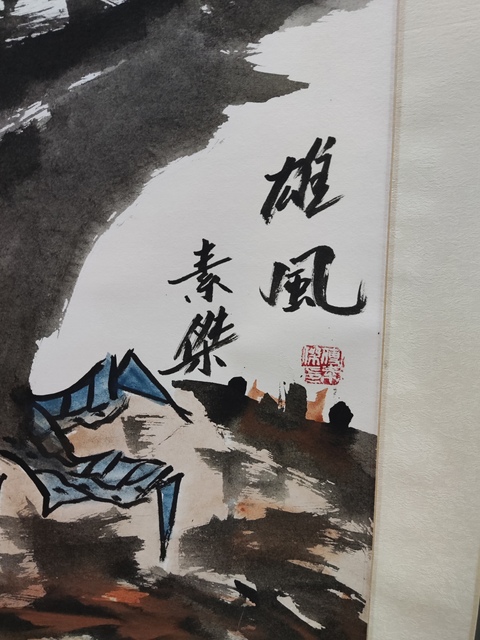 雄風
素傑